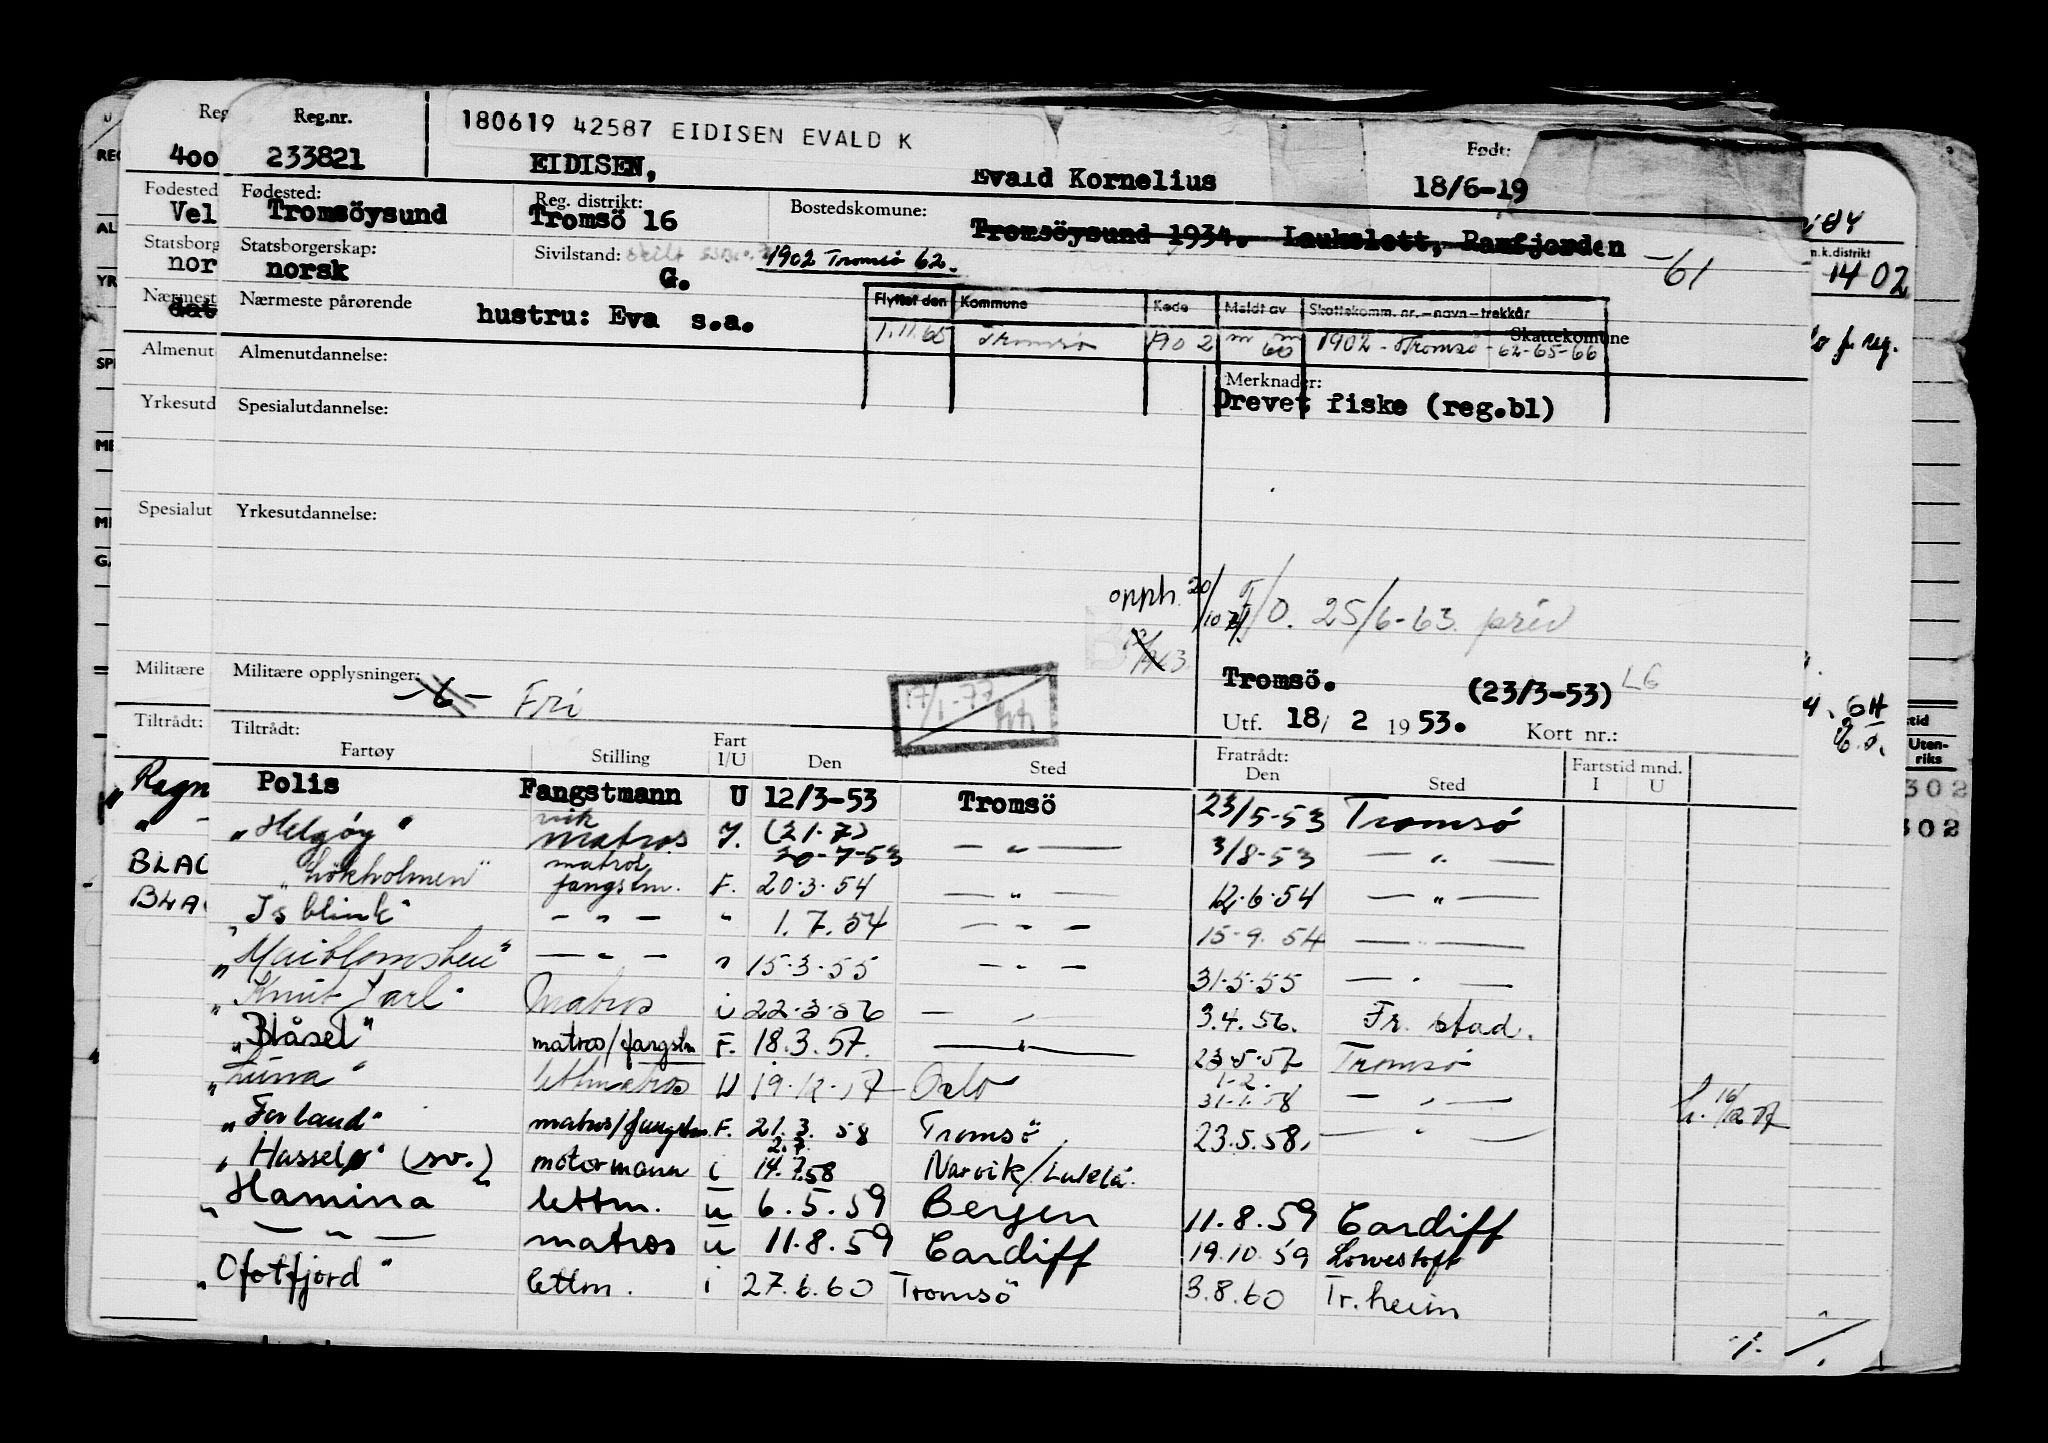 Reg.nr. 180619 42587 EIDISEN EVALD K
233821 EIDISEN, Evald Kornelius Født: 18/6-19
Fødested: Tromsöysund Reg. distrikt: Tromsö 16 Bostedskomune: Tromsöysund 1934. Laukslett, Ramfjorden -61
Statsborgerskap: norsk Sivilstand: G. 1902 Tromsö 62.
Nærmeste pårørende hustru: Eva s.a.
Flyttet den Kommune Kode Meldt av Skattekomm. nr.-navn-trekkår
1.11.65 Tromsö 1902 1902 - Tromsö - 62-65-66 Skattekomune
Almenutdannelse:
Merknader:
Spesialutdannelse: Drevet fiske (reg.bl)
Yrkesutdannelse:
opph. 20/10 F/O. 25/6-63. priv
Militære opplysninger: -6- Fri 17/1-77
Tromsö. (23/3-53) L6
Utf. 18/ 2 1953. Kort nr.:
Tiltrådt: Fratrådt:
Fartøy Stilling Fart I/U Den Sted Den Sted Fartstid mnd. I U
Polis Fangstmann U 12/3-53 Tromsö 23/5-53 Tromsö
"Helgöy" matros (21.7) 20-7-53 — " — 3/8-53 — " —
matros fangstm. F. 20.3.54 — " — 12.6.54 — " —
"Isblink" — " — " 1.7.54 — " — 15-9.54 — " —
— " — " 15.3.55 — " — 31.5.55 — " —
"Knut Jarl" Matros i 22.3.56 — " — 3.4.56. Fr.stad.
"Blåsel" matros/fangstm F. 18.3.57. — " — 23.5.57 Tromsö
"Luna" lettmatros U 19.12.57 Oslo 1.2. 31.1.58 — " —
"Forland" matros/fangstm. F. 21.3.58 Tromsö 23.5.58. — " —
"Hasselø" (sv.) motormann i 2.7. 14.7.58 Narvik/Luleå.
"Hamina lettm. u 6.5.59 Bergen 11.8.59 Cardiff
— " — matros u 11.8.59 Cardiff 19.10.59 Lowestoft
"Ofotfjord" lettm. i 27.6.60 Tromsö 3.8.60 Tr.heim